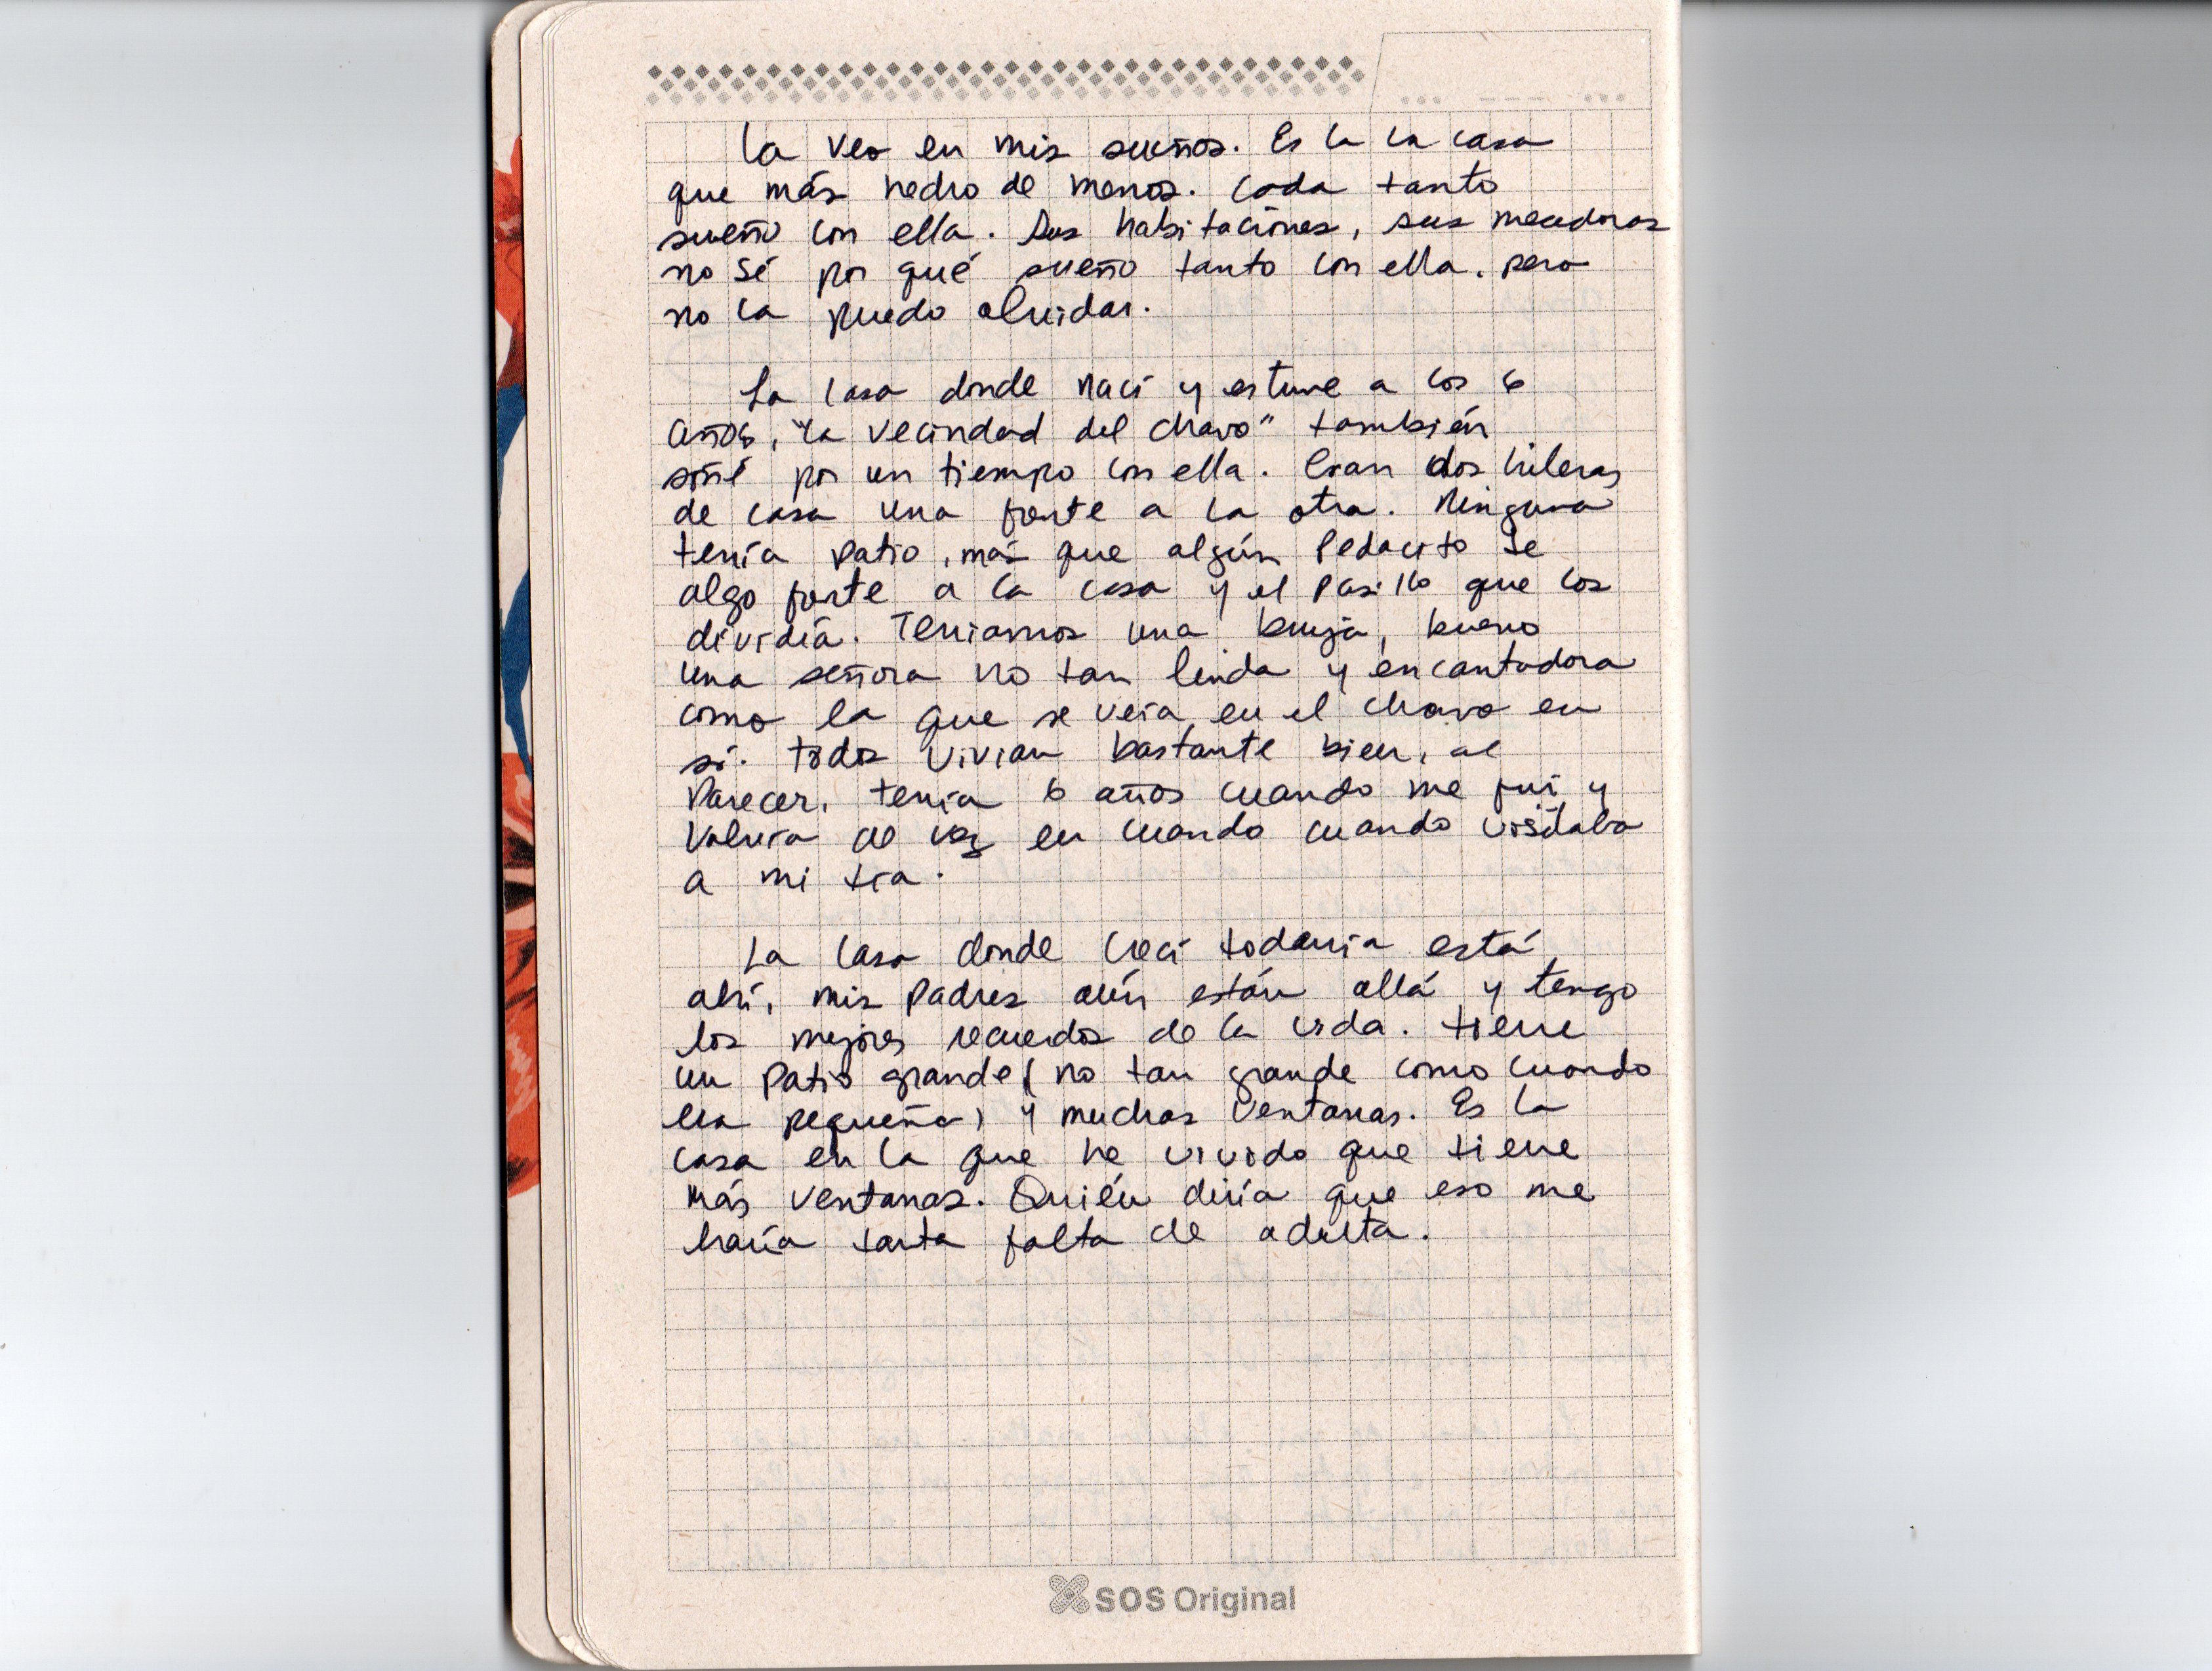 La veo en mis sueños. Es la la casa
que más hecho de menos. Cada tanto
sueño con ella. Sus habitaciones, sus mecedoras
no sé por qué sueño tanto con ella, pero
no la puedo olvidar.
La casa donde nací y estuve a los 6
años, "la vecindad del chavo" también
soñé por un tiempo con ella. Eran dos hileras
de casa una frente a la otra. Ninguna
tenía patio, más que algún pedacito de
algo frente a la casa y el pasillo que los
dividía. Teniamos una bruja, bueno
una señora no tan linda y encantadora
como la que se veia en el chavo en
sí. todos vivian bastante bien, al
parecer. tenia 6 años cuando me fui y
volvia de vez en cuando cuando visitaba
a mi tía.
La casa donde crecí todavia está
ahí, mis padres aún están allá y tengo
los mejores recuerdos de la vida. tiene
un patio grande (no tan grande como cuando
era pequeña) y muchas ventanas. Es la
casa en la que he vivido que tiene
más ventanas. Quién diría que eso me
haría tanta falta de adulta.
SOS Original